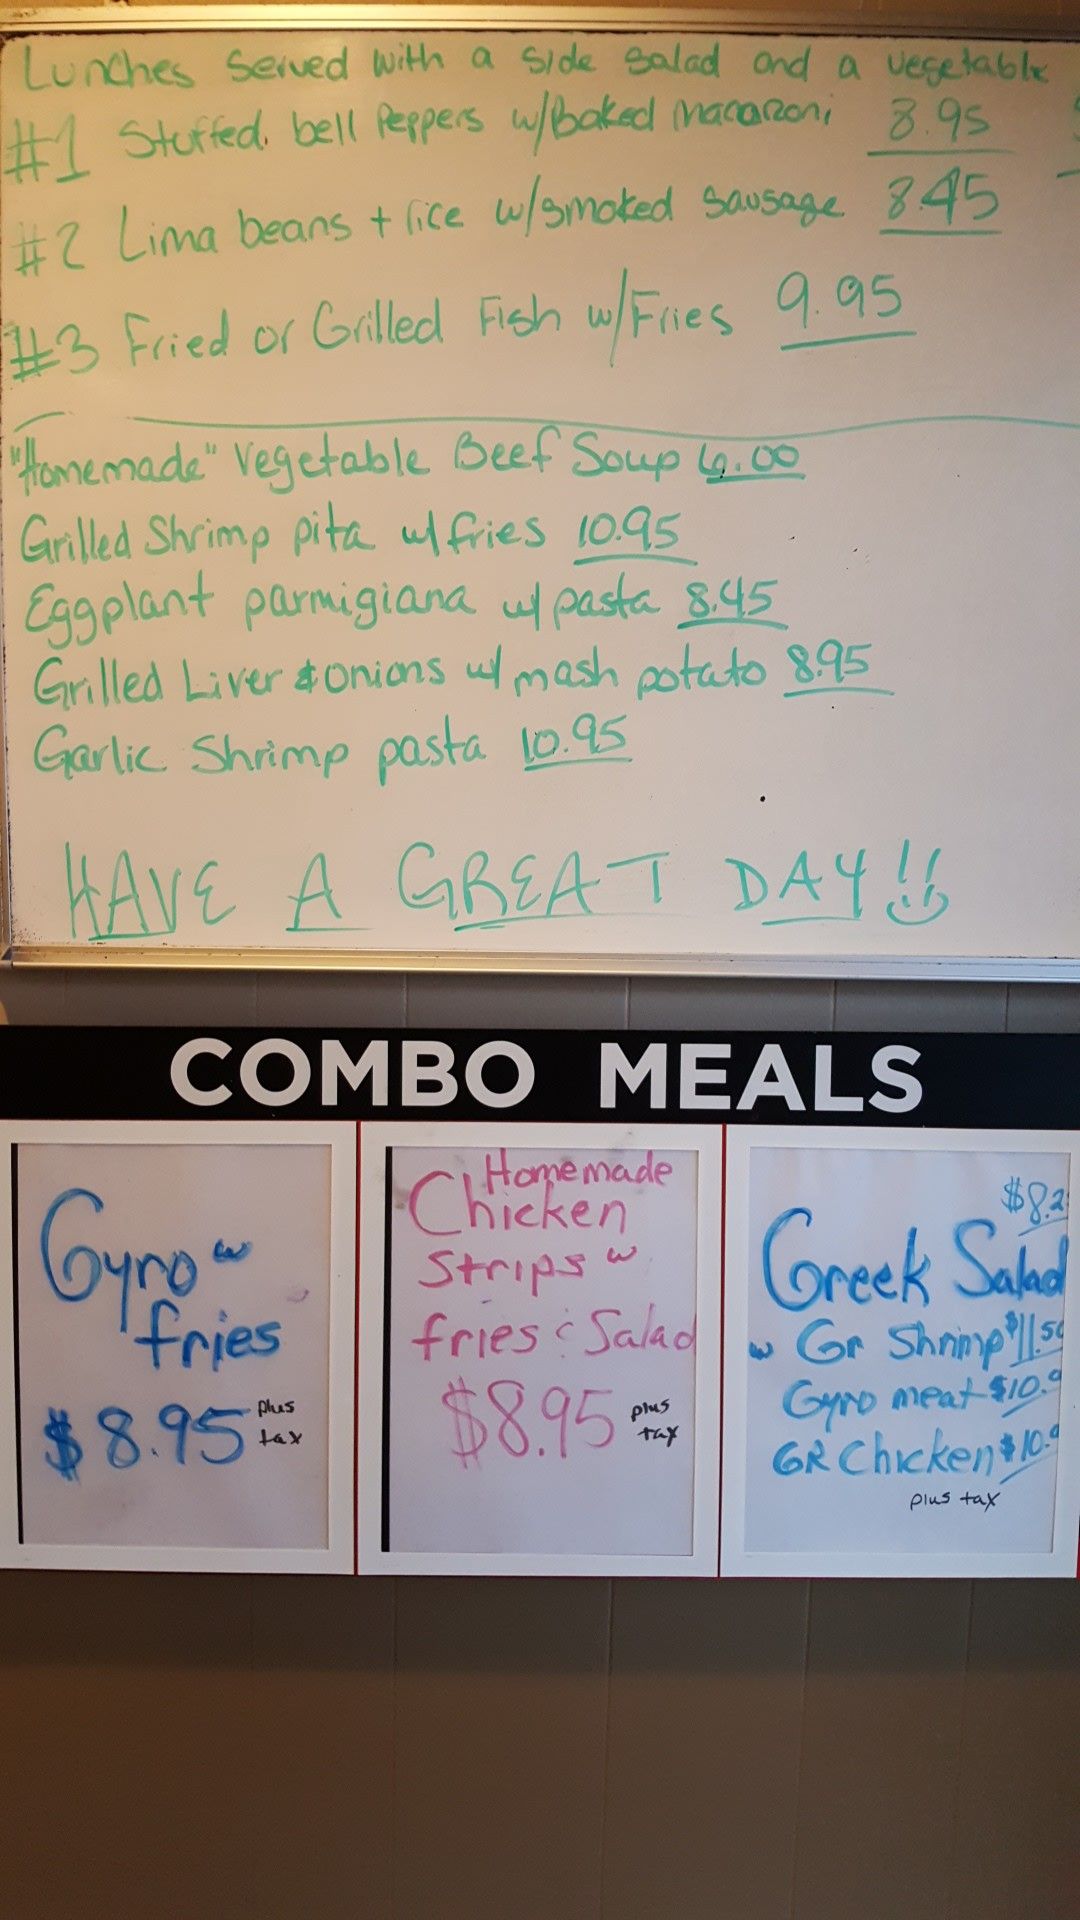 Lunches served with a side salad and a vegetable
#1 Stuffed bell Peppers w/Baked Macaroni 8.95
#2 Lima beans + rice w/smoked sausage 8.45
#3 Fried or Grilled Fish w/Fries 9.95
"Homemade" Vegetable Beef Soup 6.00
Grilled Shrimp pita w/fries 10.95
Eggplant parmigiana w/ pasta 8.45
Grilled Liver & onions w/ mash potato 8.95
Garlic Shrimp pasta 10.95
HAVE A GREAT DAY!!
COMBO MEALS
Gyro w
fries
$8.95 plus
tax
Homemade
Chicken
Strips w
fries & Salad
$8.95 plus
tax
$8.2
Greek Salad
w Gr Shrimp $11.50
Gyro meat $10.9
GR Chicken $10.9
plus tax